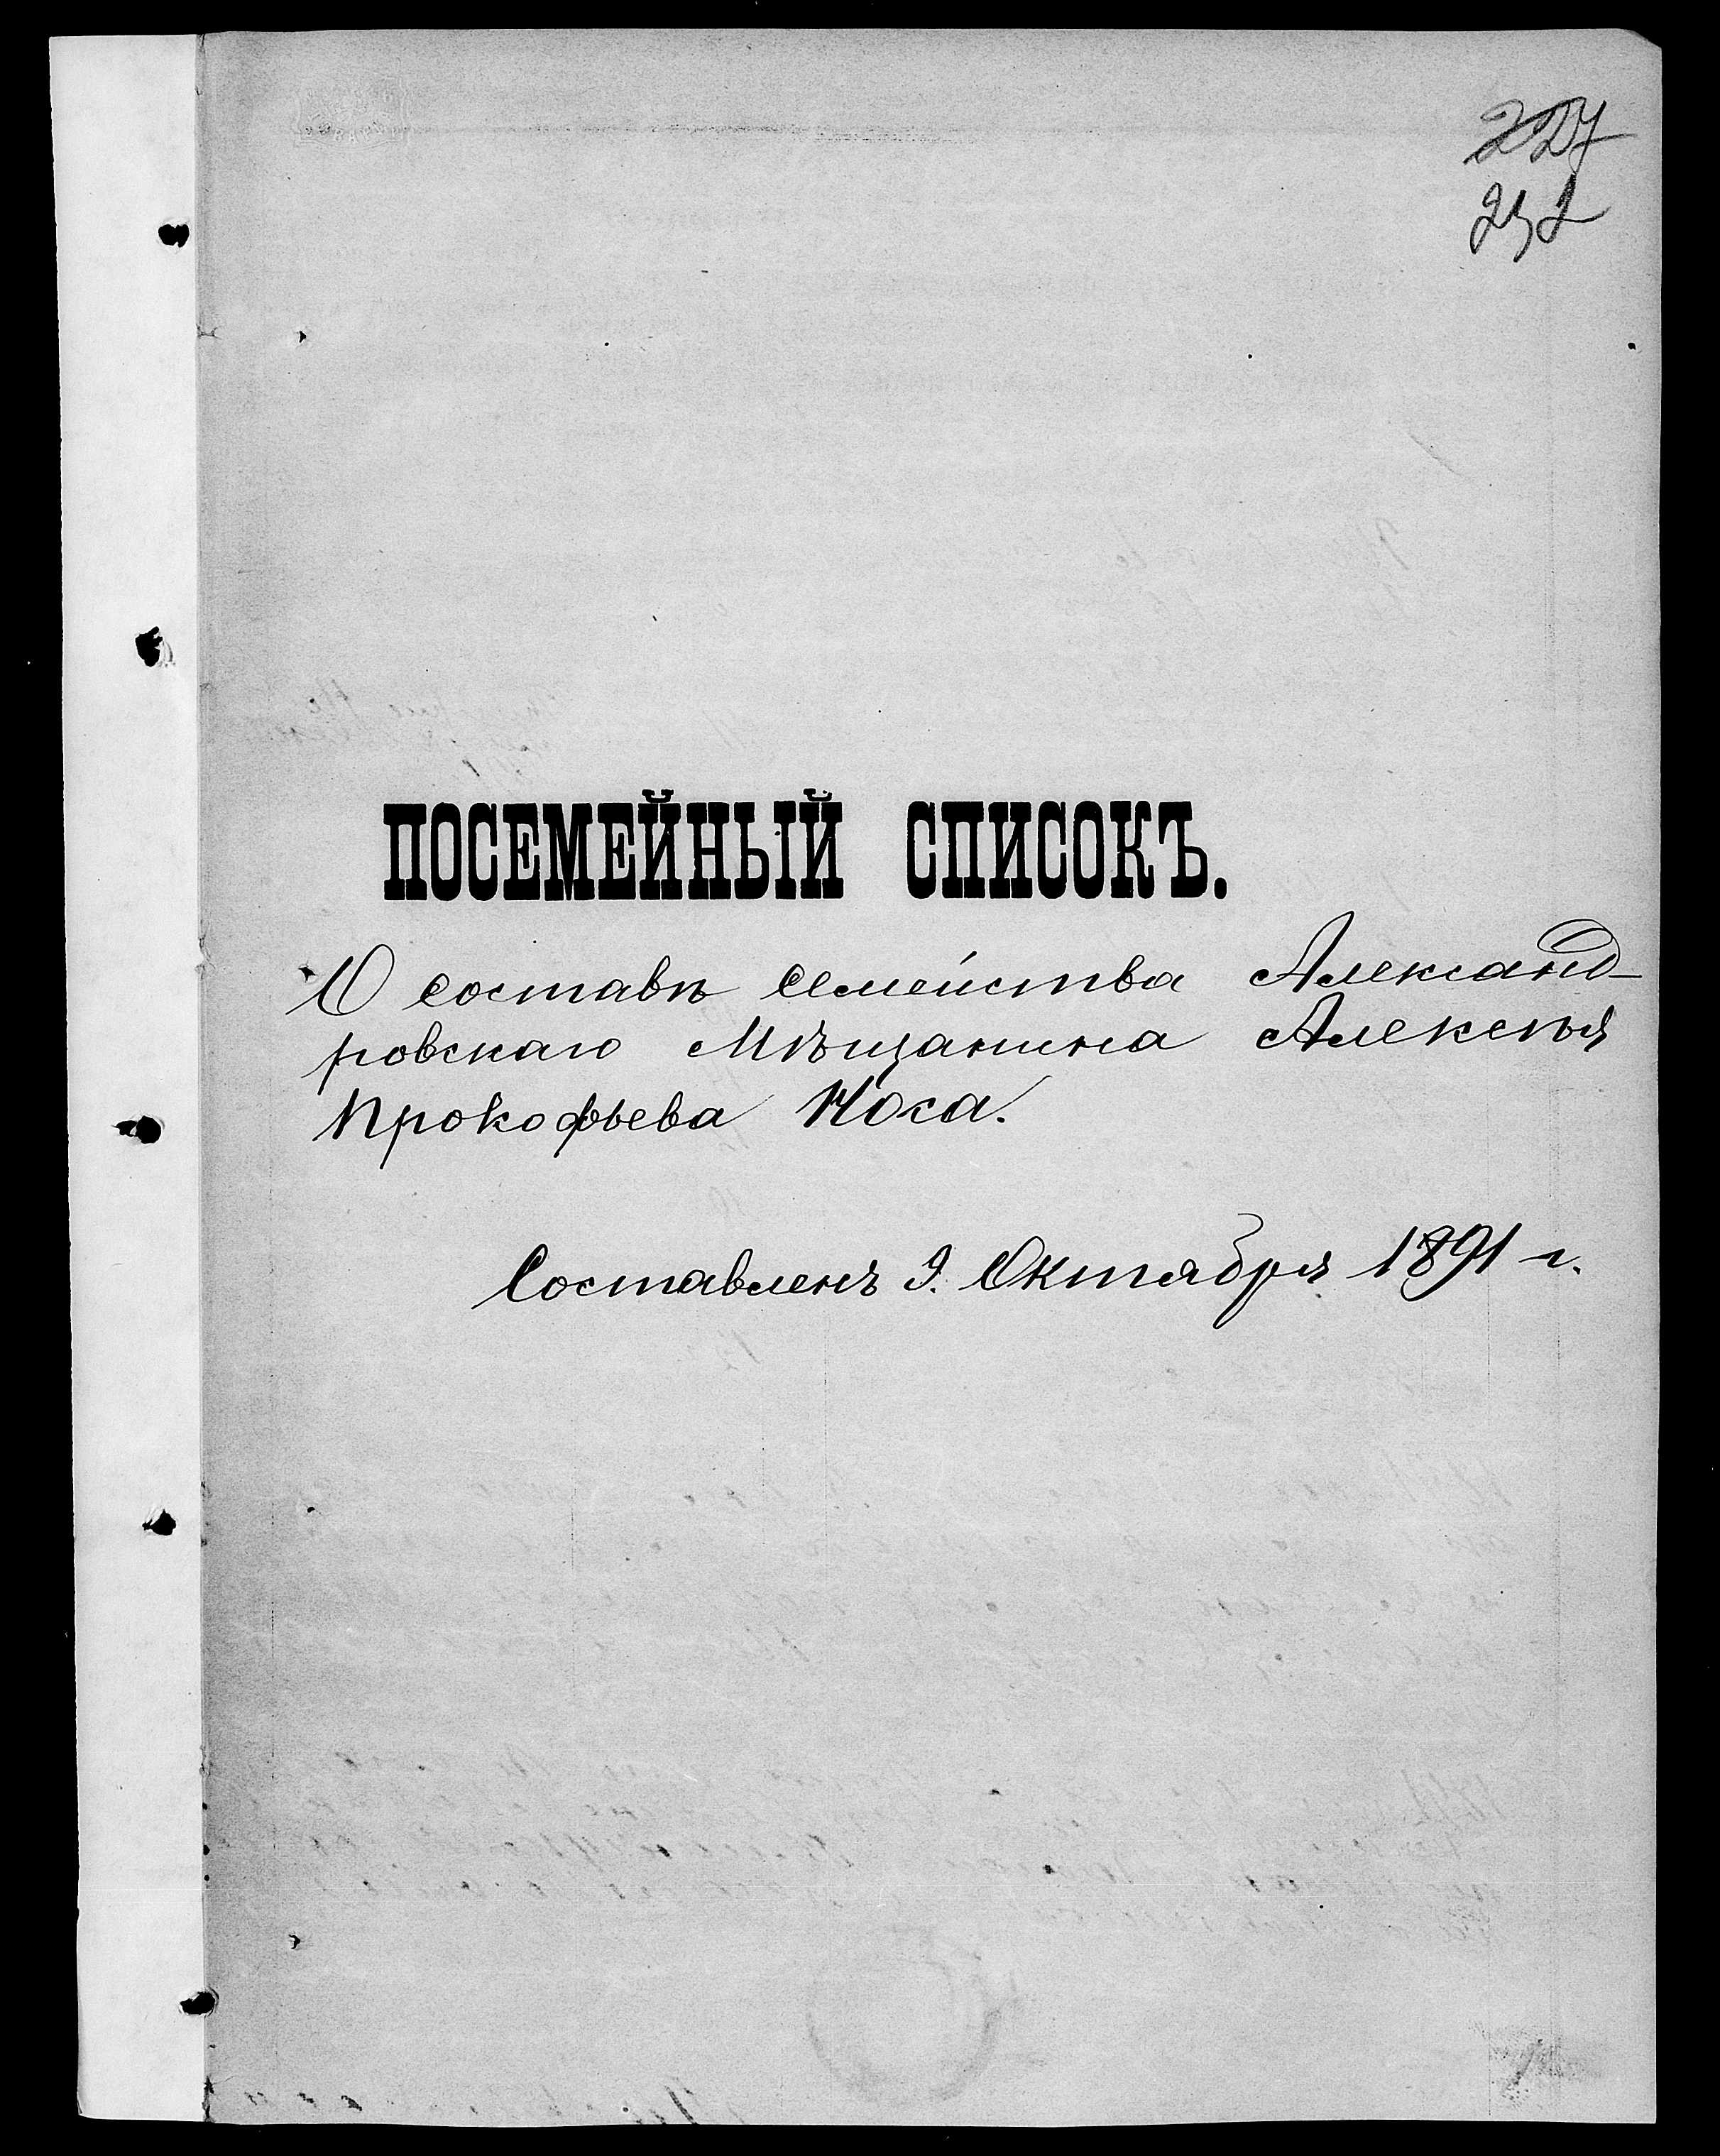 227
232
ПОСЕМЕЙНЫЙ СПИСОКЪ.
О составѣ Семейства Александ-
ровскаго Мѣщанина Алексѣя
Прокофьева Носа.
Составленъ 9. Октября 1891 г.